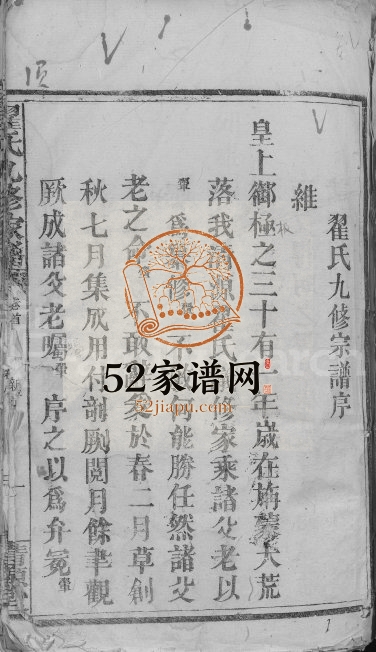 翟氏九修宗譜序
維
皇上御極之三十有一年歲在旃蒙大荒
落我清源翟氏修家乘諸父老以
爲纂修不能勝任然諸父
老之命不敢於春二月草創
秋七月集成用付剞劂閱月餘聿觀
厥成諸父老囑肇序之以爲弁冕肇
翟氏九修宗譜
卷首
52家谱网
52jiapu.com
頂